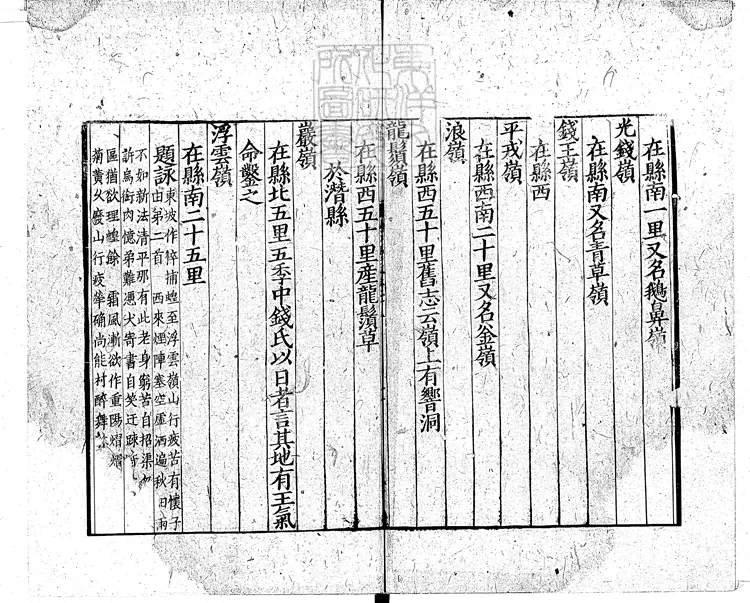 在縣南一里又名鵝鼻嶺
光錢嶺
在縣南又名青草嶺
錢王嶺
在縣西
平戎嶺
在縣西南二十里又名釡嶺
浪嶺
在縣西五十里舊志云嶺上有響洞
龍鬚嶺
在縣西五十里産龍鬚草
於潛縣
巖嶺
在縣北五里五季中錢氏以日者言其地有王氣
命鑿之
浮雲嶺
在縣南二十五里
題詠東坡作捽捕蝗至浮雲嶺山行疲苦有懷子
由弟二首 西來煙陣塞空虛洒遍秋田雨
不如新法清平那有此老身窮苦自招渠
訴烏銜肉憶弟難憑犬寄書自笑迂疎
區猶欲理蝗餘 霜風漸欲作重陽熠熠
菊黄久廢山行疲犖确尚能村醉舞